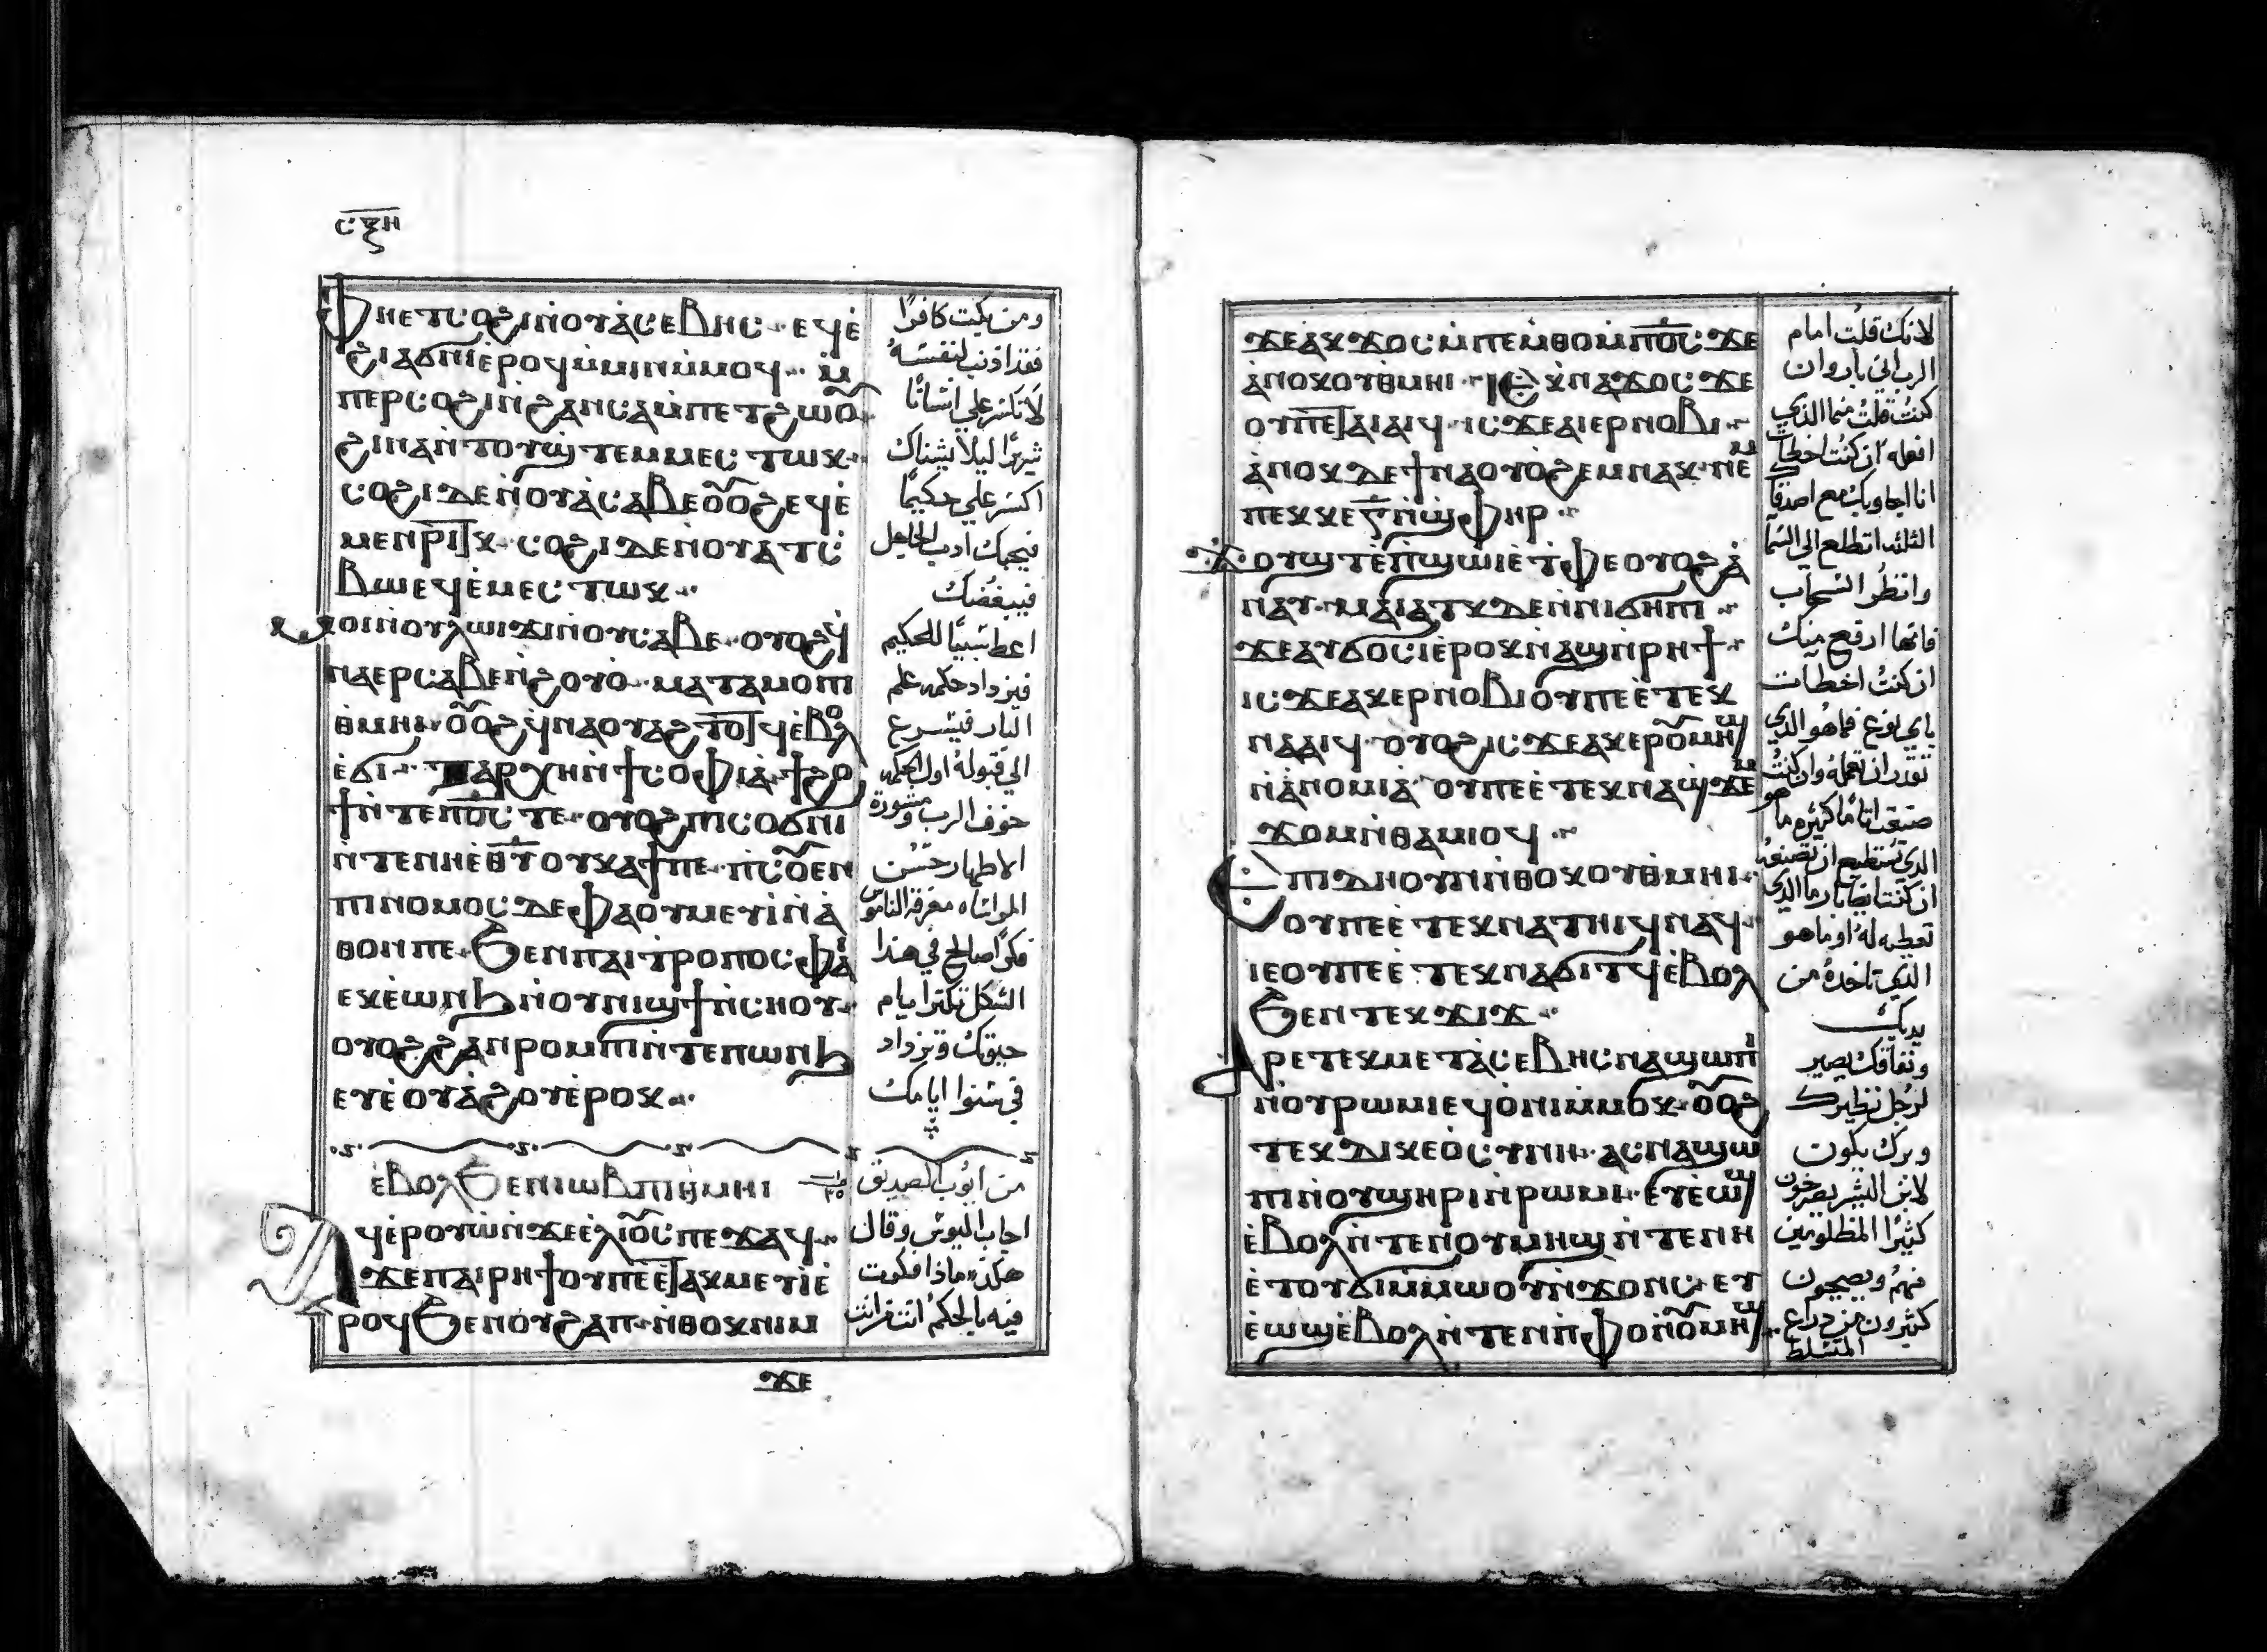 ⲥⲝⲏ
ⲫⲏⲉⲧⲥⲟϩⲓⲛ̀ⲟⲩⲁ̀ⲥⲉⲃⲏⲥ·· ⲉϥⲉ̀
ϩⲓⲁϭⲛⲓⲉ̀ⲣⲟϥⲙ̀ⲙⲓⲛⲙ̀ⲙⲟϥ·· ⲙ̀
ⲡⲉⲣⲥⲟϩⲓⲛ̀ϩⲁⲛⲥⲁⲙ̀ⲡⲉⲧϩⲱⲟ︦
ϩⲓⲛⲁⲛ̀ⲧⲟⲩϣⲧⲉⲙⲙⲉⲥⲧⲱⲕ··
ⲥⲟϩⲓⲇⲉⲛ̀ⲟⲩⲁ̀ⲥⲁⲃⲉⲟ︦ⲟ︦ϩⲉϥⲉ̀
ⲙⲉⲛⲣⲓⲧⲕ·· ⲥⲟϩⲓⲇⲉⲛⲟⲩⲁⲧⲥ̀
ⲃⲱⲉϥⲉ̀ⲙⲉⲥⲧⲱⲕ··
ⲙⲟⲓⲛ̀ⲟⲩⲗⲱⲓϫⲓⲛ̀ⲟⲩⲥⲁⲃⲉ·· ⲟⲩⲟϩϥ̀
ⲛⲁⲉⲣⲥⲁⲃⲉⲛ̀ϩⲟⲩⲟ̀·· ⲙⲁⲧⲁⲙⲟⲡⲓ
ⲑⲙⲏⲓ·· ⲟ︦ⲟ︦ϩϥ̀ⲛⲁⲟⲩⲁϩⲧⲟⲧϥⲉ̀ⲃⲟⲗ
ⲉ̀ϭⲓ·· ⲧⲁⲣⲭⲏⲛ̀ϯⲥⲟⲫⲓⲁ̀·· ϯϩⲟ
ϯⲛ̀ⲧⲉⲡⲟ̅ⲥ̅ⲧⲉ·· ⲟⲩⲟϩⲡⲓⲥⲟϭⲛⲓ
ⲛ̀ⲧⲉⲛⲏⲉ̅ⲑ̅ⲩ̅ⲟⲩⲕⲁϯⲡⲉ·· ⲡ̀ⲥⲟ︦ⲉⲛ
ⲡⲓⲛⲟⲙⲟⲥⲇⲉⲫⲁⲟⲩⲙⲉⲩⲓ̀ⲛ̀ⲁ̀
ⲑⲟⲛⲡⲉ·· ϧⲉⲛⲡⲁⲓⲧⲣⲟⲡⲟⲥⲫⲁ̀
ⲉⲕⲉ̀ⲱⲛϧⲛ̀ⲟⲩⲛⲓϣϯⲛ̀ⲥⲏⲟⲩ··
ⲟⲩⲟϩϩⲁⲛⲣⲟⲙⲡⲓⲛ̀ⲧⲉⲡⲱⲛϧ
ⲉⲩⲉ̀ⲟⲩⲁ̀ϩⲟⲩⲉ̀ⲣⲟⲕ··
ⲉ̀ⲃⲟⲗϧⲉⲛⲓⲱⲃⲡⲓⲑ̀ⲙⲏⲓ
ⲁϥⲉ̀ⲣⲟⲩⲱ̀ⲛ̀ϫⲉⲉ̀ⲗⲓⲟ︦ⲥⲡⲉϫⲁϥ··
ϫⲉⲡⲁⲓⲣⲏϯⲟⲩⲡⲉⲉ̀ⲧⲁⲕⲙⲉⲩⲓ̀ⲉ̀
ⲣⲟϥϧⲉⲛⲟⲩϩⲁⲡ·· ⲛ̀ⲑⲟⲕⲛⲓⲙ
ϫⲉ
ومن يكيت كافرًا
فقد اذنب لنفسه
لا تكتر علي انسانًا
شريرًا ليلا يشناك
اكتر علي حكيمًا
فيحبك ادب الجاهل
فيبغضك
اعط سببًا للحكيم
فيزداد حكمه علم
البار فيتسرع
الي قبوله اول الحكمه
خوف الرب ومشورة
الاطهار حسن
المراشاه معرفة الناموس
فكرًا صالح في هذا
الشكل تكترا يام
حيوتك وتزداد
في سنوا ايامك
من ايوب الصديق
اجاب اليوس وقال
هكذه ماذا فكرت
فيه بالحكم انت من انت
ϫⲉⲁ̀ⲕϫⲟⲥⲙ̀ⲡⲉⲙⲑⲟⲙ̀ⲡⲟ̅ⲥ̅ϫⲉ
ⲁ̀ⲛⲟⲕⲟⲩⲑⲙⲏⲓ·· ⲓⲉⲕⲛⲁϫⲟⲥϫⲉ
ⲟⲩⲡⲉⲧⲁⲓⲁⲓϥ·ⲓⲥϫⲉⲁⲓⲉⲣⲛⲟⲃⲓ··
ⲁ̀ⲛⲟⲕⲇⲉϯⲛⲁⲟⲩⲟ̀ϩⲉⲙⲛⲁⲕ·ⲛⲉⲙ
ⲡⲉⲕⲕⲉⲅ̅ⲛ̀ϣⲫⲏⲣ··
ϫⲟⲩϣⲧⲉ̀ⲡ̀ϣⲱⲓⲉ̀ⲧ̀ⲫⲉⲟⲩⲟϩⲁ̀
ⲛⲁⲩ·ⲙⲁⲓ̀ⲁⲧⲕⲇⲉⲛ̀ⲛⲓϭⲏⲡⲓ··
ϫⲉⲁⲩϭⲟⲥⲓⲉ̀ⲣⲟⲕⲛ̀ⲁϣⲛ̀ⲣⲏϯ··
ⲓⲥϫⲉⲁⲕⲉⲣⲛⲟⲃⲓⲟⲩⲡⲉⲉ̀ⲧⲉⲕ
ⲛⲁⲁⲓϥ·ⲟⲩⲟϩⲓⲥϫⲉⲁⲕⲉⲣⲟ︦ⲙⲏϣ
ⲛ̀ⲁ̀ⲛⲟⲙⲓⲁ̀·ⲟⲩⲡⲉⲉ̀ⲧⲉⲕⲛⲁϣϫⲉⲙ
ϫⲟⲙⲛ̀ⲑⲁⲙⲓⲟϥ··
ⲉⲡⲓⲇⲏⲟⲩⲛⲛ̀ⲑⲟⲕⲟⲩⲑⲙⲏⲓ··
ⲟⲩⲡⲉⲉ̀ⲧⲉⲕⲛⲁⲧⲏⲓϥⲛⲁϥ··
ⲓⲉⲟⲩⲡⲉⲉ̀ⲧⲉⲕⲛⲁϭⲓⲧϥⲉ̀ⲃⲟⲗ
ϧⲉⲛⲧⲉⲕϫⲓϫ··
ⲁⲣⲉⲧⲉⲕⲙⲉⲧⲁ̀ⲥⲉⲃⲏⲥⲛⲁϣⲱⲡⲓ
ⲛ̀ⲟⲩⲣⲱⲙⲓⲉϥⲟ̀ⲛⲓⲙ̀ⲙⲟⲕ·ⲟ︦ⲟ︦ϩ
ⲧⲉⲕⲇⲓⲕⲉⲟ̀ⲥⲩⲛⲏ··ⲁⲥⲛⲁϣⲱ
ⲡⲓⲛ̀ⲟⲩϣⲏⲣⲓⲛ̀ⲣⲱⲙⲓ··ⲉⲩⲉ̀ⲱϣ
ⲉ̀ⲃⲟⲗⲛ̀ⲧⲉⲛⲟⲩⲙⲏϣⲛ̀ⲧⲉⲛⲏ
ⲉ̀ⲧⲟⲩϭⲓⲙ̀ⲙⲱⲟⲩⲛ̀ϫⲟⲛⲥ··ⲉⲩ
ⲉ̀ⲱϣⲉ̀ⲃⲟⲗⲛ̀ⲧⲉⲛⲡ̀ⲫⲟⲛ̀ⲟ︦ⲙⲏϣ··
لانك قلت امام
الرب اني بار وان
كنت قلت فما الذي
افعله ان كنت اخطات
انا اجاوبك مع اصدقاك
الثلثه اتطلع الي السما
وانظر السحاب
فانها ارفع منك
ان كنت اخطات
باي نوع فما هو الذي
تقدر ان تعمله وان كنت
صنعت اثامًا كثيره ما هو
الذي تستطيع ان تصنعه
ان كنت ايضًا بار ما الذي
تعطيه له او ما هو
الذي تاخده من
يديك
ونفاقك يصير
لرجل نظيرك
وبرك يكون
لابن البشر يصرخون
كثيرًا المظلومين
منهم ويصيحون
كثيرون من دراع
المتسلط